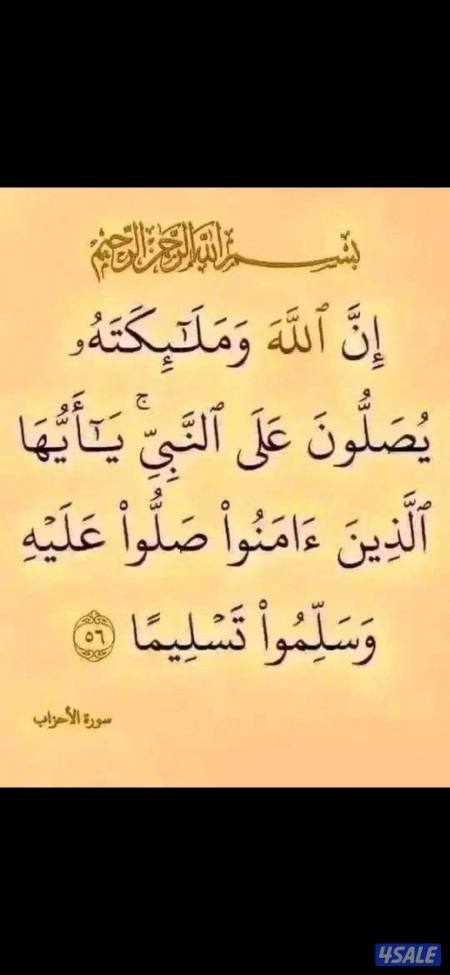 بسم الله الرحمن الرحيم
إِنَّ ٱللَّهَ وَمَلَـٰٓئِكَتَهُۥ
يُصَلُّونَ عَلَى ٱلنَّبِىِّ ۚ يَـٰٓأَيُّهَا
ٱلَّذِينَ ءَامَنُوا۟ صَلُّوا۟ عَلَيْهِ
وَسَلِّمُوا۟ تَسْلِيمًا ٥٦
سورة الأحزاب
4SALE